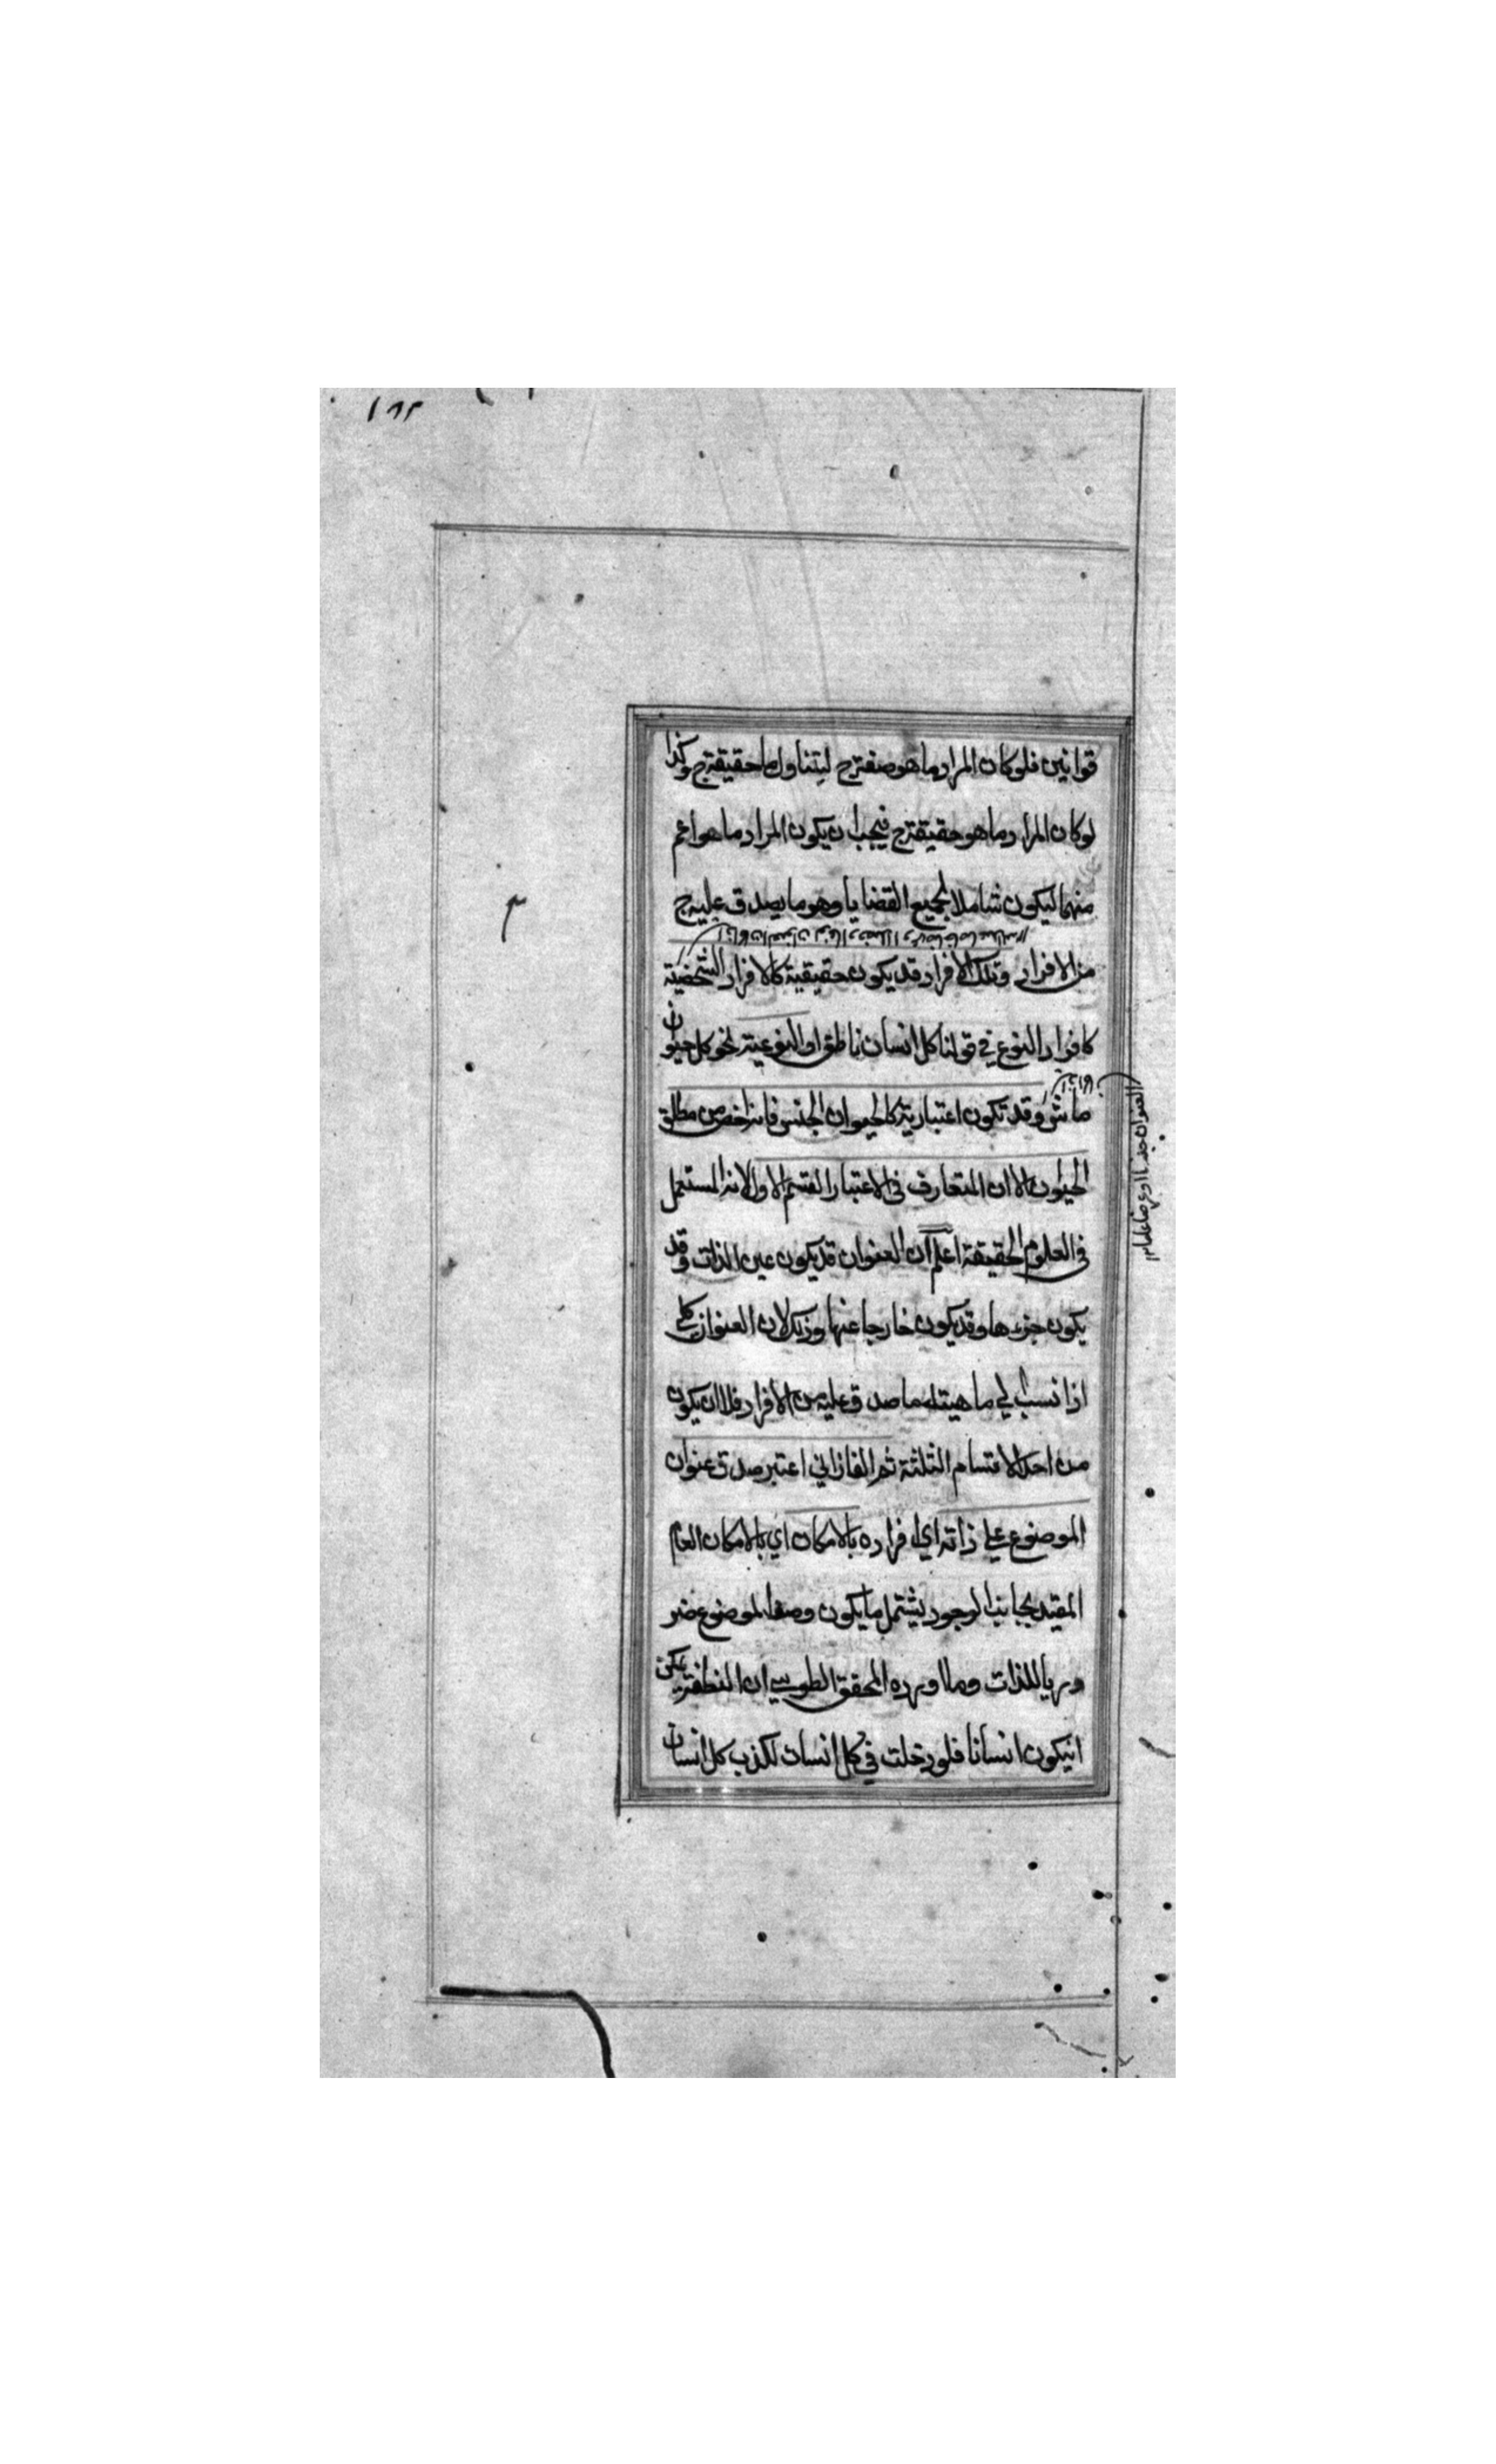 ١٨٣
قوانين فلو كان المراد ما هو صفة ج ليتناول ما حقيقة ج وكذا
لو كان المراد ما هو حقيقة ج فيجب ان يكون المراد ما هو اعم
منهما ليكون شاملا لجميع القضايا وهو ما يصدق عليه ج
من الافراد وتلك الافراد قد يكون حقيقية كالافراد الشخصية
كافراد النوع في قولنا كل انسان ناطق او النوعية نحو كل حيوان
ماش وقد تكون اعتبارية كالحيوان الجنس فانه اخص من مطلق
الحيوان الا ان المتعارف في الاعتبار القسم الاول لانه المستعمل
في العلوم الحقيقة اعلم ان العنوان قد يكون عين الذات وقد
يكون جزءها وقد يكون خارجا عنها وذلك لان العنوان كلي
اذا نسب الي ماهية ما صدق عليه من الافراد فلا ان يكون
من احد الاقسام الثلثة ثم الفارابي اعتبر صدق عنوان
الموضوع علي ذاته اي افراده بالامكان اي بالامكان العام
المقيد بجانب الوجود ليشتمل ما يكون وصفا لموضوع ضر
وريا للذات ولما اورده المحقق الطوسي ان النطفة يمكن
انيكون انسانا فلو دخلت في كل انسان لكذب كل انسان